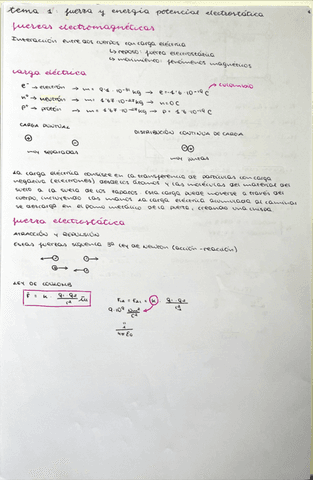 tema 1: fuerza y energía potencial electrostática
fuerzas electromagnéticas
Interacción entre dos cuerpos con carga eléctrica
↳ reposo: fuerza electrostática
↳ movimiento: fenómenos magnéticos
carga eléctrica
e⁻ → electrón → m = 9'1 · 10⁻³¹ kg → e = -1'6 · 10⁻¹⁹ C → coulombio
n⁰ → neutrón → m = 1'67 · 10⁻²⁷ kg → n = 0 C
p⁺ → protón → m = 1'67 · 10⁻²⁷ kg → p = 1'6 · 10⁻¹⁹ C
CARGA PUNTUAL
DISTRIBUCIÓN CONTINUA DE CARGA
muy separadas
muy juntas
La carga eléctrica consiste en la transferencia de partículas con carga
negativa (electrones) desde los átomos y las moléculas del material del
suelo a la suela de los zapatos. Esa carga puede moverse a través del
cuerpo, incluyendo las manos. La carga eléctrica acumulada al caminar
se descarga en el pomo metálico de la puerta, creando una chispa.
fuerza electrostática
ATRACCIÓN Y REPULSIÓN
Estas fuerzas siguen la 3ª Ley de Newton (acción-reacción)
LEY DE COULOMB
F = K · q₁ · q₂ / r²
F₁₂ = F₂₁ = K · q₁ · q₂ / r²
9·10⁹ Nm²/C²
1 / 4πε₀